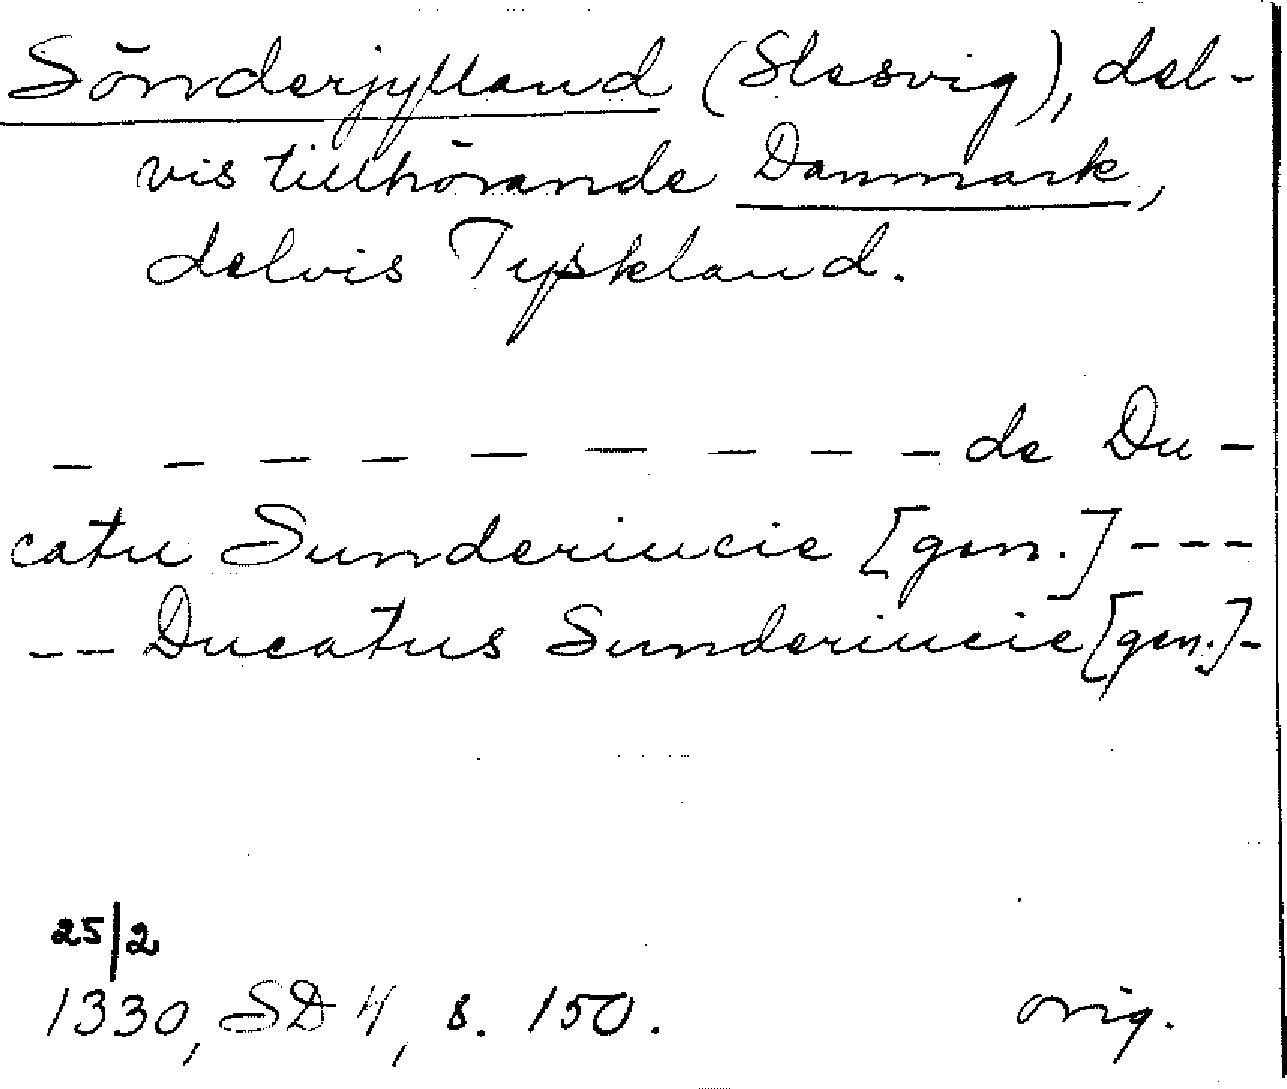 Sönderjylland (Slesvig), del-
vis tillhörande Danmark,
delvis Tyskland.
- - - - - - - - - de Du-
catu Sunderiucie [gen.] ---
-- Ducatus Sunderiucie [gen.]-
25/2
1330, SD 4, s. 150. orig.